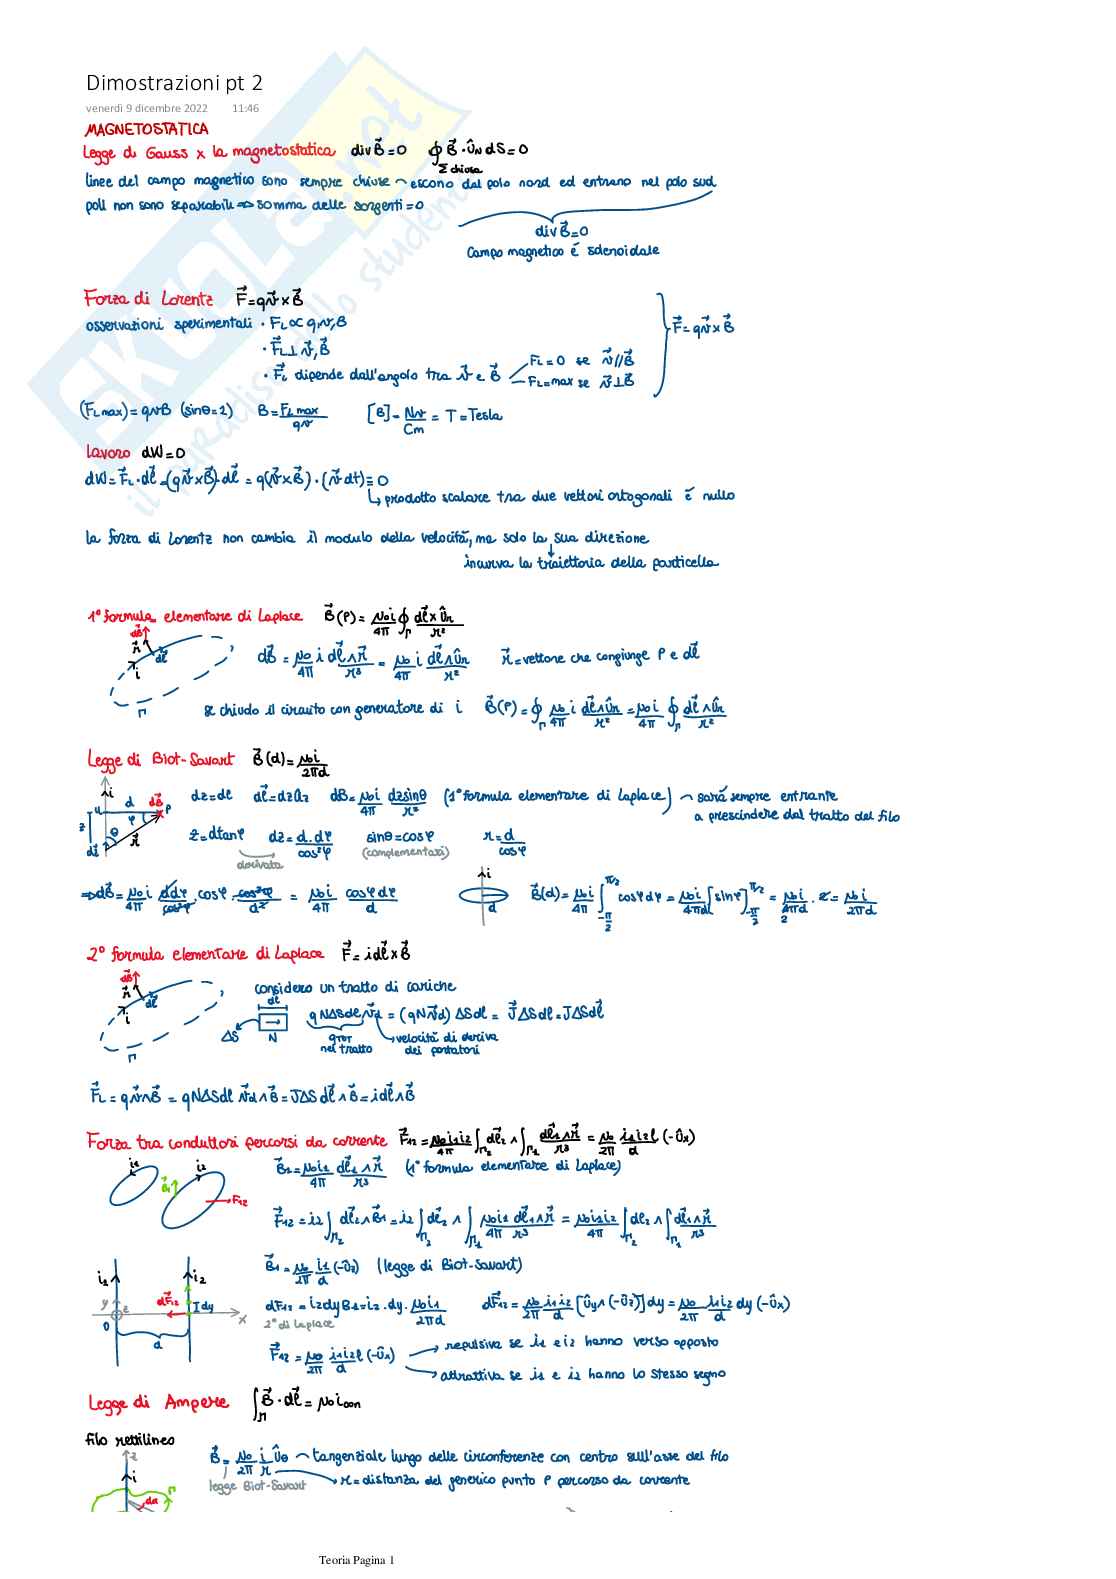 Dimostrazioni pt 2
venerdì 9 dicembre 2022 11:46
MAGNETOSTATICA
Legge di Gauss x la magnetostatica div B⃗=0 ∮_Σ chiusa B⃗·û_N dS=0
linee del campo magnetico sono sempre chiuse ~ escono dal polo nord ed entrano nel polo sud
poli non sono separabili ⇒ somma delle sorgenti=0
div B⃗=0
Campo magnetico é solenoidale
Forza di Lorentz F⃗=qv⃗×B⃗
osservazioni sperimentali · F_L ∝ q,v,B
F⃗=qv⃗×B⃗
· F⃗_L ⊥ v⃗,B⃗
· F⃗_L dipende dall'angolo tra v⃗ e B⃗
F_L=0 se v⃗//B⃗
F_L=max se v⃗⊥B⃗
(F_L max)=qvB (sinθ=1) B=F_L max/qv [B]=Ns/Cm = T=Tesla
lavoro dW=0
dW=F⃗_L·dl⃗=(qv⃗×B⃗)·dl⃗ = q(v⃗×B⃗)·(v⃗dt)=0
↳ prodotto scalare tra due vettori ortogonali é nullo
la forza di Lorentz non cambia il modulo della velocità, ma solo la sua direzione
incurva la traiettoria della particella
1ª formula elementare di Laplace B⃗(P)=μ₀i/4π ∮_Γ dl⃗×û_r/r²
dB⃗ r⃗ dl⃗ i Γ
dB⃗ = μ₀/4π i dl⃗∧r⃗/r³ = μ₀/4π i dl⃗∧û_r/r² r⃗=vettore che congiunge P e dl⃗
se chiudo il circuito con generatore di i B⃗(P)=∮_Γ μ₀/4π i dl⃗∧û_r/r² = μ₀i/4π ∮_Γ dl⃗∧û_r/r²
Legge di Biot-Savart B⃗(d)=μ₀i/2πd
i d dB⃗ P φ z θ r⃗ dl⃗
dz=dl dl⃗=dzû_z dB=μ₀i/4π dzsinθ/r² (1ª formula elementare di Laplace) ~ sarà sempre entrante
a prescindere dal tratto del filo
z=dtanφ dz=d·dφ/cos²φ sinθ=cosφ r=d/cosφ
derivata (complementari)
⇒dB⃗=μ₀i/4π ddφ/cos²φ·cosφ·cos²φ/d² = μ₀i/4π cosφdφ/d
i d
B⃗(d)=μ₀i/4π ∫_{-π/2}^{π/2} cosφdφ=μ₀i/4πd [sinφ]_{-π/2}^{π/2}=μ₀i/4πd·2=μ₀i/2πd
2ª formula elementare di Laplace F⃗=idl⃗×B⃗
dB⃗ r⃗ dl⃗ i Γ
considero un tratto di cariche
dl ΔS N
qNΔSdl v⃗_d = (qNv⃗_d)ΔSdl = J⃗ΔSdl=JΔSdl⃗
q_TOT
nel tratto
velocità di deriva
dei portatori
F⃗_L=qv⃗∧B⃗ = qNΔSdl v⃗_d∧B⃗=JΔSdl⃗∧B⃗=idl⃗∧B⃗
Forza tra conduttori percorsi da corrente F⃗₁₂=μ₀i₁i₂/4π ∫_Γ₂ dl⃗₂∧∫_Γ₁ dl⃗₁∧r⃗/r³=μ₀/2π i₁i₂l/d (-û_x)
i₁ i₂ B⃗₁ F₁₂
B⃗₁=μ₀i₁/4π dl⃗₁∧r⃗/r³ (1ª formula elementare di Laplace)
F⃗₁₂=i₂∫_Γ₂ dl⃗₂∧B⃗₁=i₂∫_Γ₂ dl⃗₂∧∫_Γ₁ μ₀i₁/4π dl⃗₁∧r⃗/r³ = μ₀i₁i₂/4π ∫_Γ₂ dl₂∧∫_Γ₁ dl⃗₁∧r⃗/r³
i₁ i₂ dF⃗₁₂ dy y z x O d
B⃗₁=μ₀/2π i₁/d (-û_z) (legge di Biot-Savart)
dF₁₂=i₂dyB₁=i₂·dy·μ₀i₁/2πd dF⃗₁₂=μ₀/2π i₁i₂/d [û_y∧(-û_z)]dy=μ₀/2π i₁i₂/d dy(-û_x)
2ª di Laplace
F⃗₁₂=μ₀/2π i₁i₂l/d (-û_x)
repulsiva se i₁ e i₂ hanno verso opposto
attrattiva se i₁ e i₂ hanno lo stesso segno
Legge di Ampere ∫_Γ B⃗·dl⃗=μ₀i_con
filo rettilineo
z i Γ dα
B⃗=μ₀/2π i/r û_θ ~ tangenziale lungo delle circonferenze con centro sull'asse del filo
legge Biot-Savart
r=distanza del generico punto P percorso da corrente
Teoria Pagina 1
SKUOLA.net
il paradiso dello studente